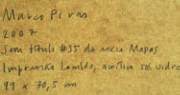 Marco Piras
2007
Sem título #35 da série Mapas
Impressão Lambda, acrílico sob vidro
99 x 70,5 cm